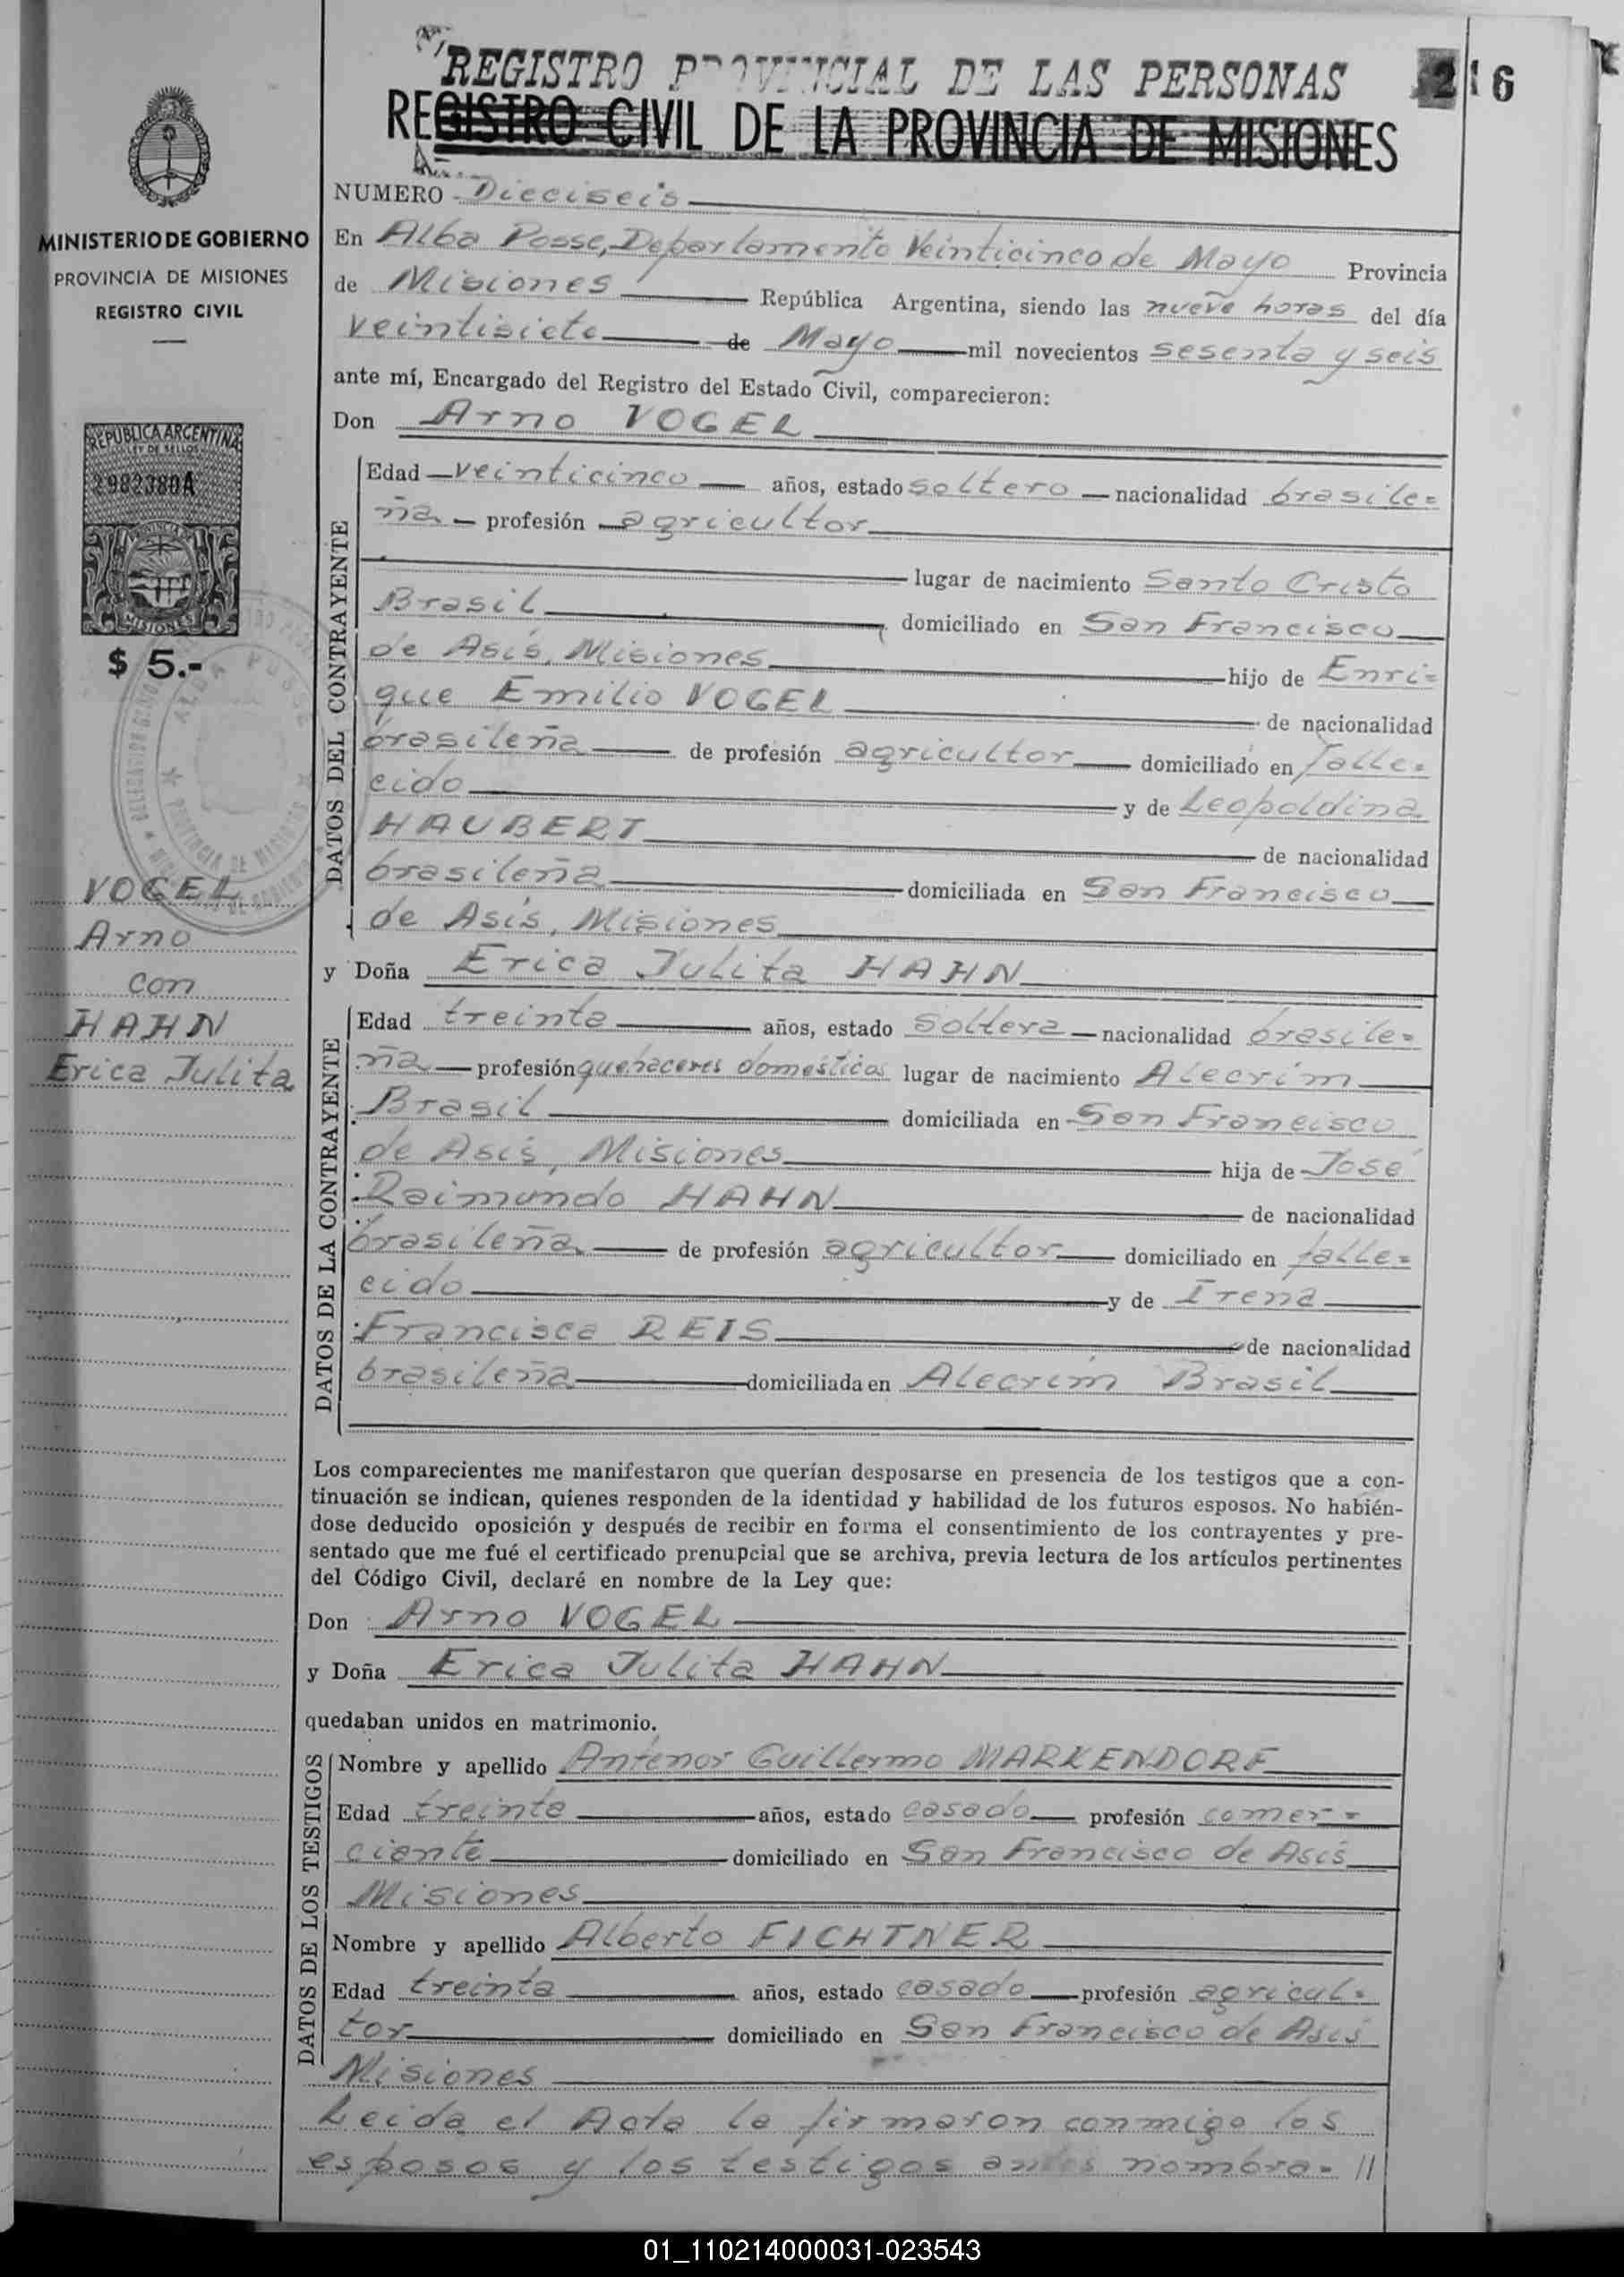 REGISTRO PROVINCIAL DE LAS PERSONAS
216
REGISTRO CIVIL DE LA PROVINCIA DE MISIONES
MINISTERIO DE GOBIERNO
PROVINCIA DE MISIONES
REGISTRO CIVIL
REPUBLICA ARGENTINA
LEY DE SELLOS
2982380A
PROVINCIA
MISIONES
$ 5.-
ALBA POSSE
PROVINCIA DE MISIONES
VOGEL
Arno
con
HAHN
Erica Julita
NUMERO Dieciseis
En Alba Posse, Departamento Veinticinco de Mayo Provincia
de Misiones República Argentina, siendo las nueve horas del día
veintisiete de Mayo mil novecientos sesenta y seis
ante mí, Encargado del Registro del Estado Civil, comparecieron:
Don Arno VOGEL
DATOS DEL CONTRAYENTE
Edad veinticinco años, estado soltero nacionalidad brasile=
ña profesión agricultor
lugar de nacimiento Santo Cristo
Brasil domiciliado en San Francisco
de Asís, Misiones hijo de Enri=
que Emilio VOGEL de nacionalidad
brasileña de profesión agricultor domiciliado en falle=
cido y de Leopoldina
HAUBERT de nacionalidad
brasileña domiciliada en San Francisco
de Asís, Misiones
y Doña Erica Julita HAHN
DATOS DE LA CONTRAYENTE
Edad treinta años, estado soltera nacionalidad brasile=
ña profesión quehaceres domésticos lugar de nacimiento Alecrim
Brasil domiciliada en San Francisco
de Asís, Misiones hija de José
Raimundo HAHN de nacionalidad
brasileña de profesión agricultor domiciliado en falle=
cido y de Irena
Francisca REIS de nacionalidad
brasileña domiciliada en Alecrim Brasil
Los comparecientes me manifestaron que querían desposarse en presencia de los testigos que a con-
tinuación se indican, quienes responden de la identidad y habilidad de los futuros esposos. No habién-
dose deducido oposición y después de recibir en forma el consentimiento de los contrayentes y pre-
sentado que me fué el certificado prenupcial que se archiva, previa lectura de los artículos pertinentes
del Código Civil, declaré en nombre de la Ley que:
Don Arno VOGEL
y Doña Erica Julita HAHN
quedaban unidos en matrimonio.
DATOS DE LOS TESTIGOS
Nombre y apellido Antenor Guillermo MARKENDORF
Edad treinta años, estado casado profesión comer=
ciante domiciliado en San Francisco de Asís
Misiones
Nombre y apellido Alberto FICHTNER
Edad treinta años, estado casado profesión agricul=
tor domiciliado en San Francisco de Asís
Misiones
Leida el Acta la firmaron conmigo los
esposos y los testigos antes nombra= //
01_110214000031-023543